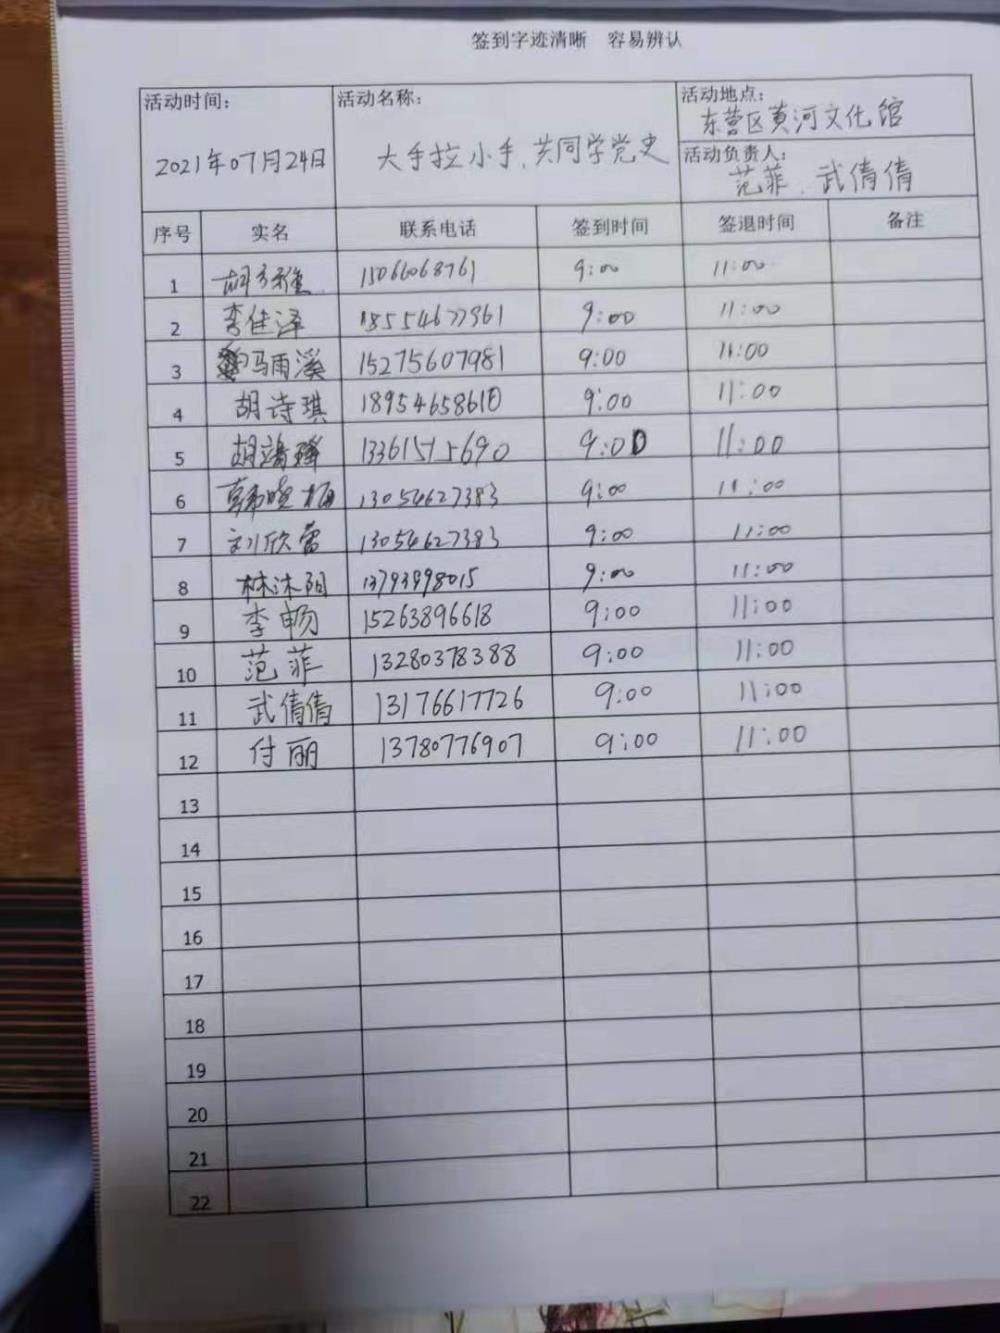 签到字迹清晰 容易辨认
活动时间： 活动名称： 活动地点：
东营区黄河文化馆
2021年07月24日 大手拉小手、共同学党史 活动负责人：
范菲、武倩倩
序号 实名 联系电话 签到时间 签退时间 备注
1 15066068761 9:00 11:00
2 李佳泽 18554677961 9:00 11:00
3 马雨溪 15275607981 9:00 11:00
4 胡诗琪 18954658610 9:00 11:00
5 13361515690 9:00 11:00
6 韩晓梅 13054627383 9:00 11:00
7 刘欣蕾 13054627383 9:00 11:00
8 林沐阳 13793998015 9:00 11:00
9 李畅 15263896618 9:00 11:00
10 范菲 13280378388 9:00 11:00
11 武倩倩 13176617726 9:00 11:00
12 付丽 13780776907 9:00 11:00
13
14
15
16
17
18
19
20
21
22